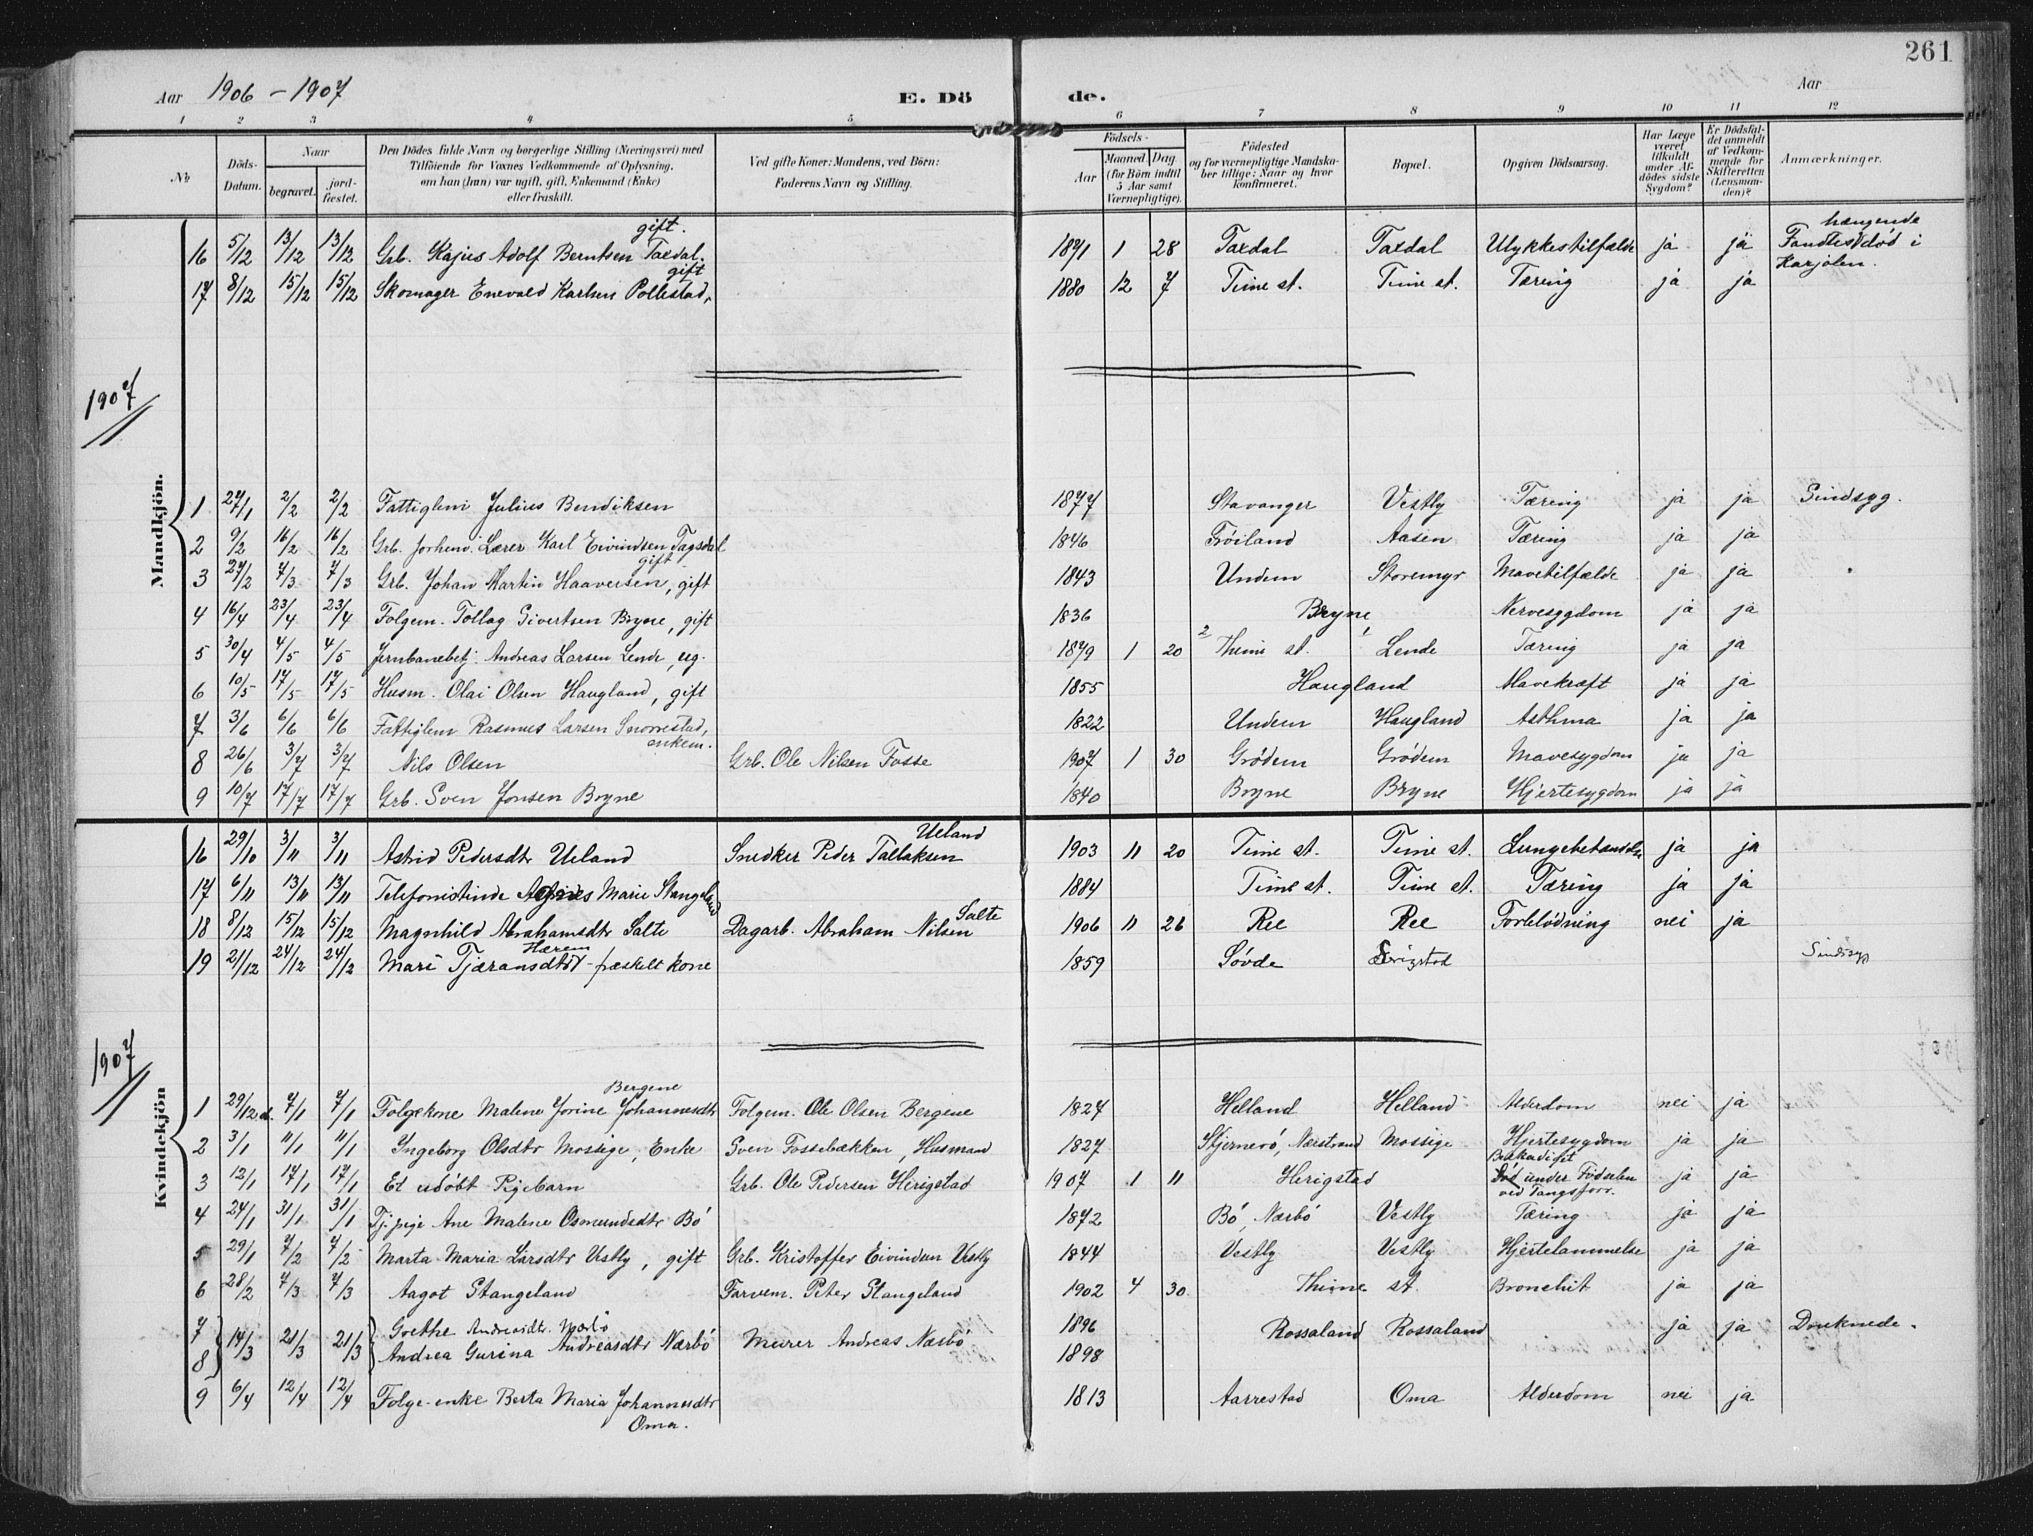 261
Aar 1906 - 1907 E. Dö de. Aar
1 2 3 4 5 6 7 8 9 10 11 12
Nr. Döds-Datum. Naar begravet. jordfæstet. Den Dödes fulde Navn og borgerlige Stilling (Næringsvei) med Tilföiende for Voxnes Vedkommende af Oplysning, om han (hun) var ugift, gift, Enkemand (Enke) eller fraskilt. Ved gifte Koner: Mandens, ved Börn: Faderens Navn og Stilling. Födsels- Aar Maaned Dag (for Börn indtil 5 Aar samt Værnepligtige). Födested og for værnepligtige Mandskaber tillige: Naar og hvor konfirmeret. Bopæl. Opgiven Dödsaarsag. Har Læge været tilkaldt under Afdödes sidste Sygdom? Er Dödsfaldet anmeldt af Vedkommende for Skifteretten (Lensmanden)? Anmærkninger.
Mandkjön.
16 5/12 13/12 13/12 Grb. Kajus Adolf Berntsen Taxdal. gift. 1891 1 28 Taxdal Taxdal Ulykkestilfælde ja ja Fandtes død i hængende Karjolen.
17 8/12 15/12 15/12 Skomager Enevald Karlsen Pollestad, gift 1880 12 7 Time st. Time st. Tæring ja ja
1907
1 27/1 2/2 2/2 Fattiglem Julius Bendiksen 1877 Stavanger Vestly Tæring ja ja Sindsyg.
2 9/2 16/2 16/2 Grb. forhenv. Lærer Karl Eivindsen Tagsdal gift 1846 Frøiland Aasen Tæring ja ja
3 27/2 7/3 7/3 Grb. Johan Martin Haaversen, gift 1843 Undem Storemyr Mavetilfælde ja ja
4 16/4 23/4 23/4 Folgem. Tollag Sivertsen Bryne, gift 1836 Bryne, Nervesygdom ja ja
5 30/4 4/5 4/5 Jernbanebetj. Andreas Larsen Lende, ug. 1879 1 20 Thime st. Lende Tæring ja ja
6 10/5 17/5 17/5 Husm. Olai Olsen Haugland, gift 1855 Haugland Mavekræft ja ja
7 3/6 6/6 6/6 Fattiglem Rasmus Larsen Snorrestad, enkem. 1822 Undem Haugland Asthma ja ja
8 26/6 3/7 3/7 Nils Olsen Grb. Ole Nilsen Fosse 1907 1 30 Grødem Grødem Mavesygdom ja ja
9 10/7 17/7 17/7 Grb. Sven Jonsen Bryne 1840 Bryne Bryne Hjertesygdom ja ja
Kvindekjön
16 29/10 3/11 3/11 Astrid Pedersdtr Ueland Snedker Peder Tallaksen Ueland 1903 11 20 Time st. Time st. Lungebetændelse ja ja
17 6/11 13/11 13/11 Telefonistinde Agnes Marie Stangeland 1884 Time st. Time st. Tæring ja ja
18 8/12 15/12 15/12 Magnhild Abrahamsdtr Salte Dagarb. Abraham Nilsen Salte 1906 11 26 Ree Ree Forblødning nei ja
19 21/12 24/12 24/12 Mari Tjæransdtr Hærem - fraskilt kone 1859 Søvde Serigstad Sindssyg
1907
1 29/12 7/1 7/1 Folgekone Malene Jorine Johannesdtr Bergene Folgem. Ole Olsen Bergene 1827 Helland Helland Alderdom nei ja
2 3/1 11/1 11/1 Ingeborg Olsdtr Mossige, Enke Sven Fossebækken, Husmand 1827 Stjernerö, Nærstrand Mossige Hjertesygdom ja ja
3 12/1 17/1 17/1 Et udøbt Pigebarn Grb. Ole Pedersen Herigstad 1907 1 11 Herigstad Død under Fødselen ved Tangsforr. ja ja
4 24/1 31/1 31/1 Tj. pige Ane Malene Osmundsdtr Bø 1872 Bø, Nærbø Vestly Tæring ja ja
5 29/1 7/2 7/2 Marta Maria Larsdtr Vestly, gift Grb. Kristoffer Eivindsen Vestly 1844 Vestly Vestly Hjertelammelse ja ja
6 28/2 7/3 7/3 Aagot Stangeland Farvem. Peter Stangeland 1902 4 30 Thime st. Bronchit ja ja
7 14/3 21/3 21/3 Goethe Andreasdtr. Nærbø Murer Andreas Nærbø 1896 Rossaland Rossaland ja ja Druknede.
8 Andrea Gurina Andreasdtr Nærbø 1898
9 6/4 12/4 12/4 Folge-enke Berta Maria Johannesdtr Oma. 1813 Aarrestad Oma Alderdom nei ja